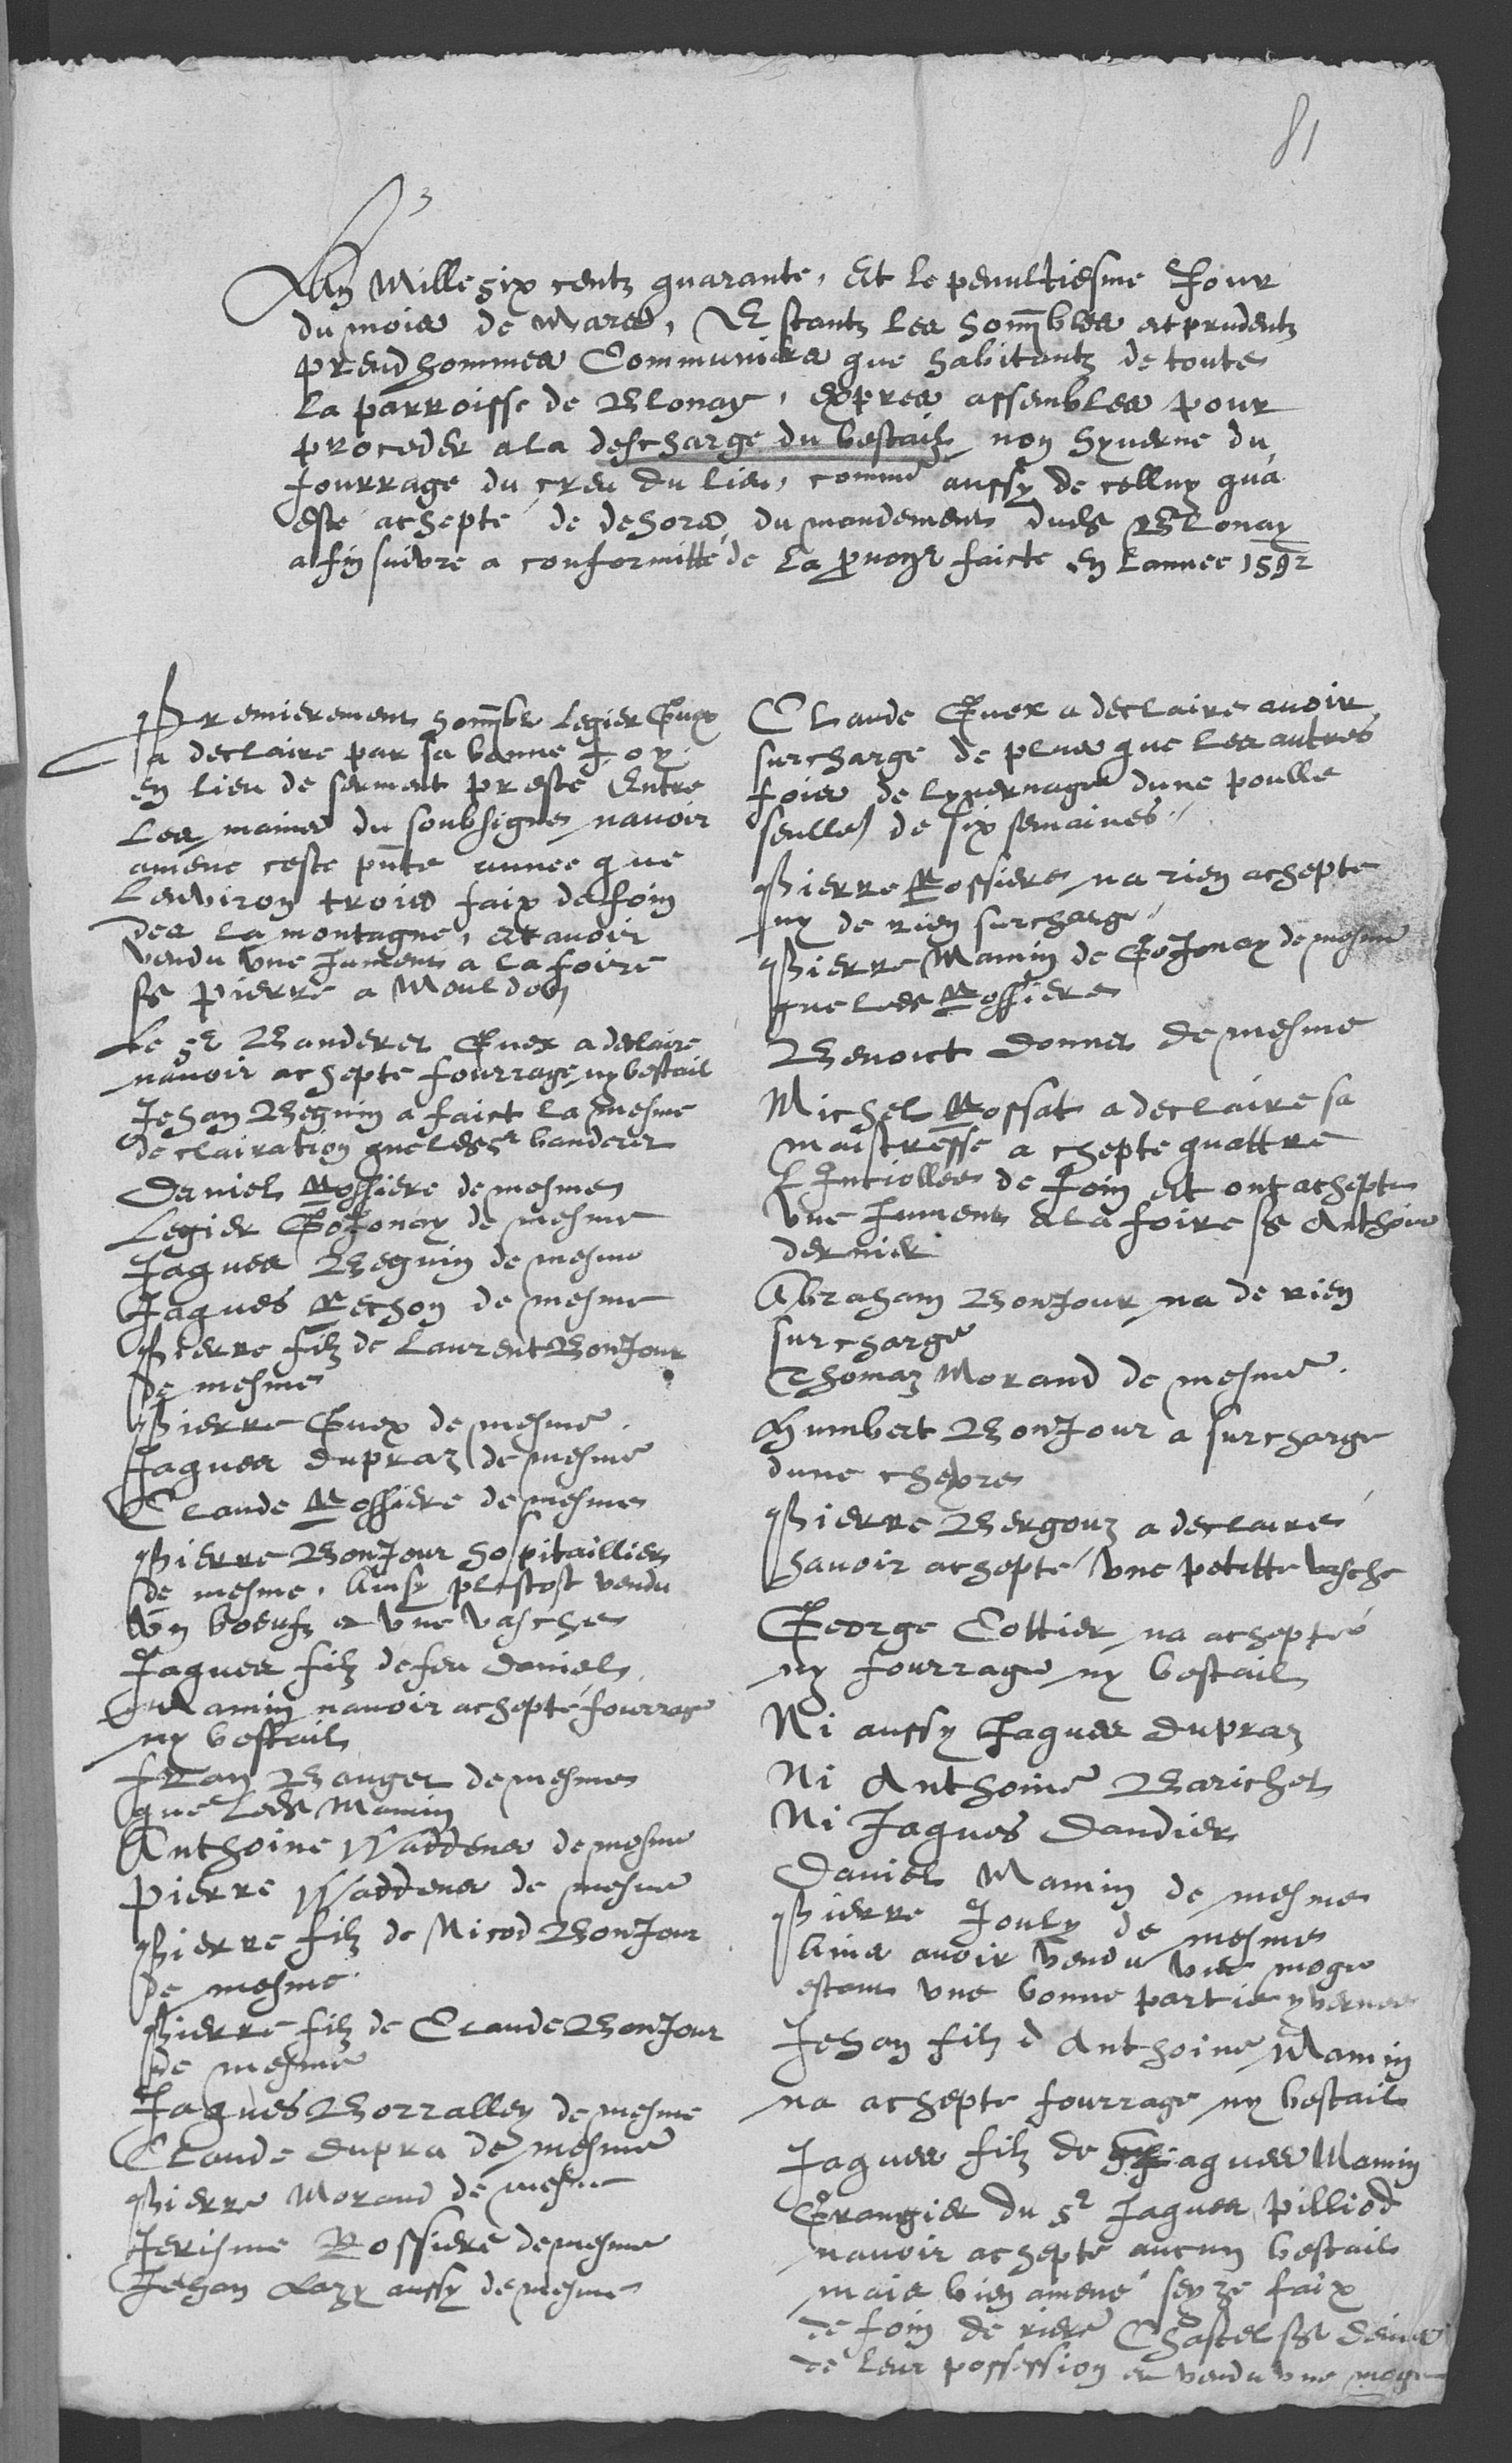 81
Lan Mille six centz quarante, et le penultiesme Jour
du mois de Mars, Estantz les honnbles et prudentz
preudhommes Communiers que habitantz de toute
la parroisse de Blonay, expres assembles pour
proceder a la descharge du bestail non hyverne du
fourrage du creu du lieu, comme aussy de celluy qua
este achepté de dehors du mandement dudt Blonay
afin suivre a conformitté de la ꝓnõn faicte en Lannee 1592
Premierement honnble Legier Guex
a declaire par sa bonne foy
en lieu de serment presté Entre
les mains du soubsigné navoir
amené ceste pnte année que
Lenviron trois faix de foin
des la montagne, et avoir
vendu une Jument a la foire
St Pierre a Mouldon
Le Sr Banderet Guex a declaire
navoir achepté fourrage ny bestail
Jehan Beguin a faict la mesme
declairation que ledt Sr banderet
Daniel Rossiere de mesmes
Legier Cojonay de mesme
Jaques Beguin de mesme
Jaques Rechon de mesme
Pierre filz de Laurent BonJour
de mesmes
Pierre Guex de mesme.
Jaques dupraz de mesme
Claude Rossiere de mesmes
Pierre BonJour hospitaillier
de mesme. Ainsy plustost vendu
un boeufz et une vasche
Jaques filz de feu Daniel
Mamin navoir achepté fourrage
ny bestail
fran Bauget de mesmes
que ledt Mamin
Anthoine Waddens de mesme
Pierre Waddens de mesme
Pierre filz de Nicod BonJour
de mesme
Pierre filz de Claude BonJour
de mesme
Jaques Borralley de mesme
Claude dupra de mesme
Pierre Morand de mesme
Jerisme Rossiere de mesme
Jehan Lazy aussy de mesmes
Claude Guex a declaire avoir
surcharge de plus que les autres
fois de Lyvernage dune poulle
seulle de six semaines.
Pierre Rossiere na rien achepte
ny de rien surcharge.
Pierre Mamin de Cojonay de mesme
que ledt Rossiere
Benoict Donnet de mesme
Michel Rossat a declaire sa
maistresse a chepte quattre
de foin et ont achepte
une Jument a la foire St Anthoine
dernier
Abraham BonJour na de rien
surcharge
Thomaz Morand de mesme.
Humbert BonJour a surcharge
dune chevre
Pierre Bergouz a declairé
havoir achepté une petitte vasche
George Cottier na acheptéʼ
ny fourrage ny bestail
Ni aussy Jaques dupraz
Ni Anthoine Barichet
Ni Jaques Dandier
Daniel Mamin de mesme
Pierre Jouly de mesmes
Ains avoir vendu une moge
estant une bonne partie yvernee
Jehan filz d Anthoine Mamin
na achepte fourrage ny bestail
Jaques filz de Jaques Mamin
Grangier du Sr Jaques Pilliod
navoir achepté aucun bestail
mais bien amené seyze faix
de foin de riere Chastel St Denis
de leur possession et vendu une moge